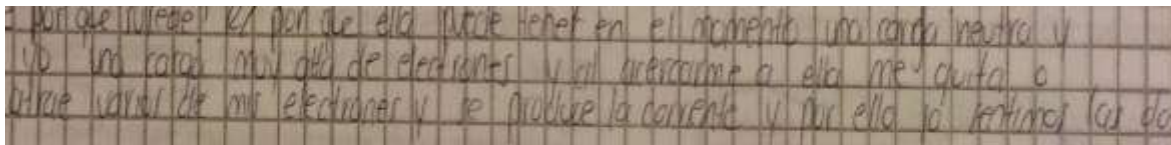 porque sucede? R/ por que ella puede tener en el momento una carga neutra y
yo una carga muy alta de electrones y al acercarme a ella me quita o
atrae varios de mis electrones y se produce la corriente y por ello lo sentimos las do